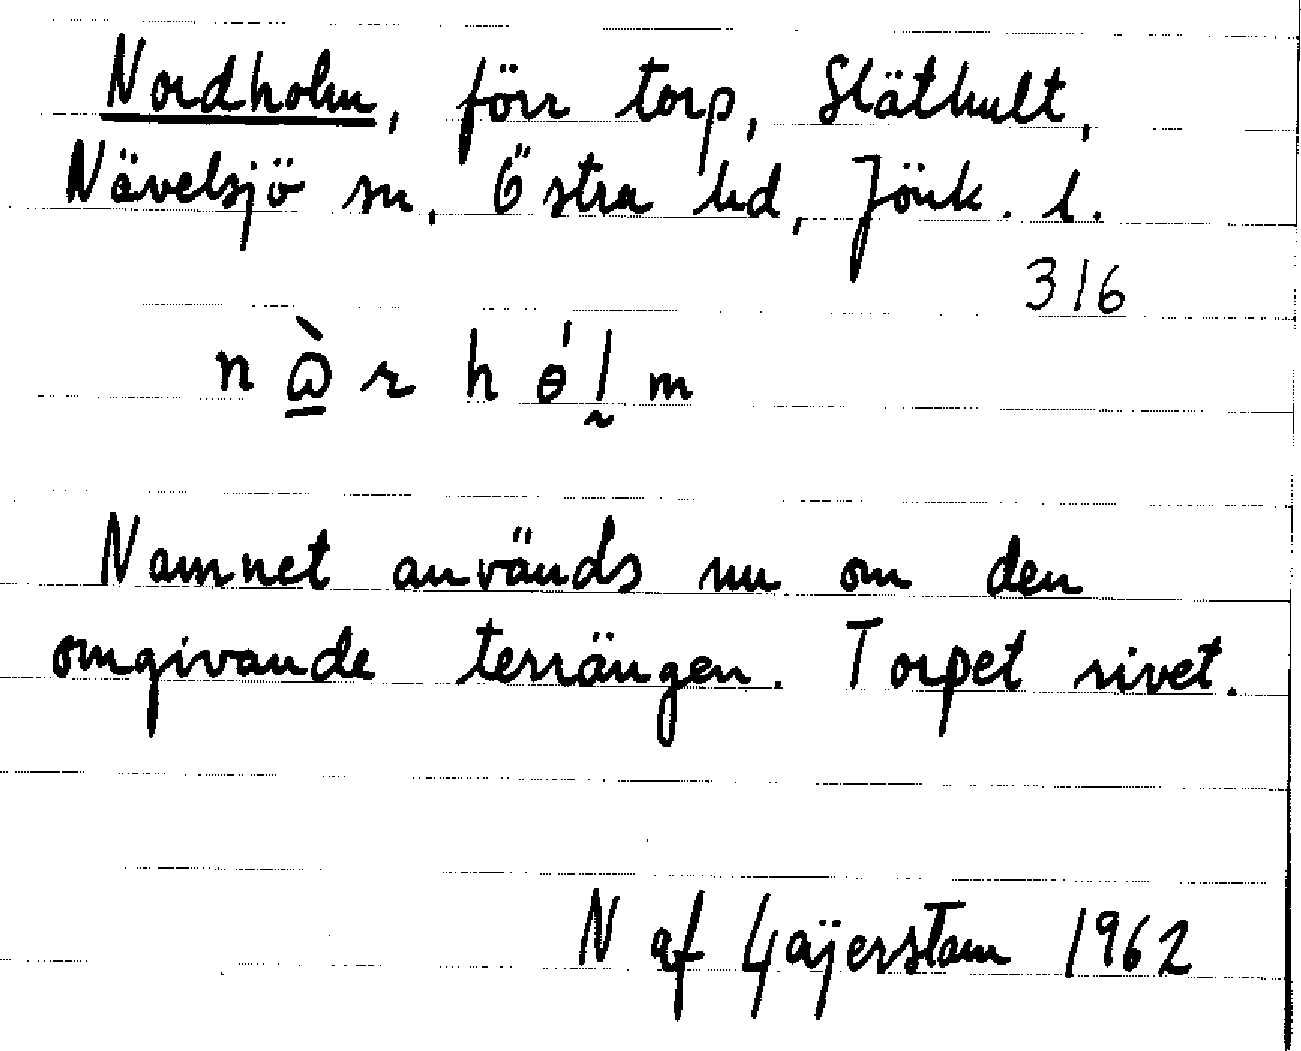 Nordholm, förr torp, Släthult,
Nävelsjö sn, Östra hd, Jönk. l.
316
n ὼ̲ r h ɵ́ l̰ m
Namnet används nu om den
omgivande terrängen. Torpet rivet.
N af Gäijerstam 1962